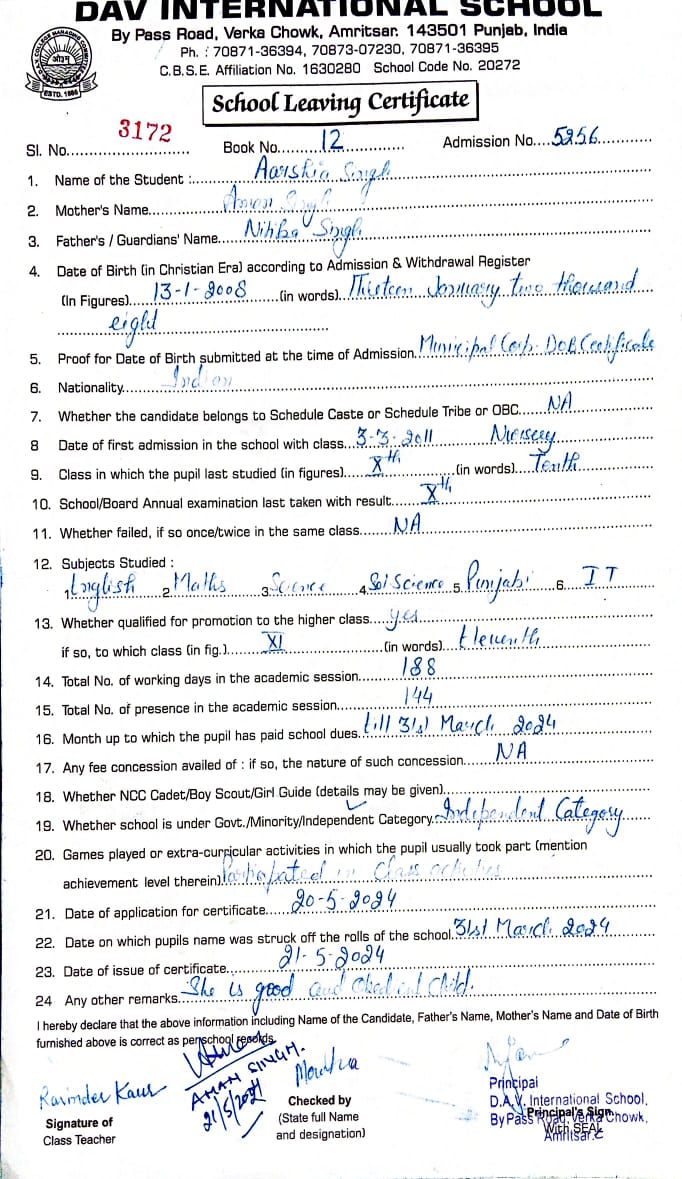 DAV INTERNATIONAL SCHOOL
By Pass Road, Verka Chowk, Amritsar. 143501 Punjab, India
Ph. : 70871-36394, 70873-07230, 70871-36395
C.B.S.E. Affiliation No. 1630280 School Code No. 20272
ESTD. 1886
School Leaving Certificate
Sl. No. 3172 Book No. 12 Admission No. 5256
1. Name of the Student : Aarshia Singh
2. Mother's Name Aman Singh
3. Father's / Guardians' Name Nitika Singh
4. Date of Birth (in Christian Era) according to Admission & Withdrawal Register
(In Figures) 13-1-2008 (in words) Thisteen January two thousand
eight
5. Proof for Date of Birth submitted at the time of Admission. Municipal Corp. DOB Certificate
6. Nationality Indian
7. Whether the candidate belongs to Schedule Caste or Schedule Tribe or OBC NA
8 Date of first admission in the school with class 3-3-2011 Nursery
9. Class in which the pupil last studied (in figures) Xth (in words) Tenth
10. School/Board Annual examination last taken with result Xth
11. Whether failed, if so once/twice in the same class NA
12. Subjects Studied :
1 English 2 Maths 3 Science 4 Sol Science 5 Punjabi 6 IT
13. Whether qualified for promotion to the higher class yes
if so, to which class (in fig.) XI (in words) Eleventh
14. Total No. of working days in the academic session 188
15. Total No. of presence in the academic session 144
16. Month up to which the pupil has paid school dues. till 31st March 2024
17. Any fee concession availed of : if so, the nature of such concession NA
18. Whether NCC Cadet/Boy Scout/Girl Guide (details may be given)
19. Whether school is under Govt./Minority/Independent Category. Independent Category
20. Games played or extra-curricular activities in which the pupil usually took part (mention
achievement level therein) Participated in Class activities
21. Date of application for certificate 20-5-2024
22. Date on which pupils name was struck off the rolls of the school 31st March 2024
23. Date of issue of certificate 21-5-2024
24 Any other remarks She is good and Obedient Child.
I hereby declare that the above information including Name of the Candidate, Father's Name, Mother's Name and Date of Birth
furnished above is correct as per school records.
AMAN SINGH.
21/5/2024
Ravinder Kaur
Signature of
Class Teacher
Checked by
(State full Name
and designation)
Principal
D.A.V. International School,
By Pass Road, Verka Chowk,
Amritsar.
Principal's Sign.
With SEAL